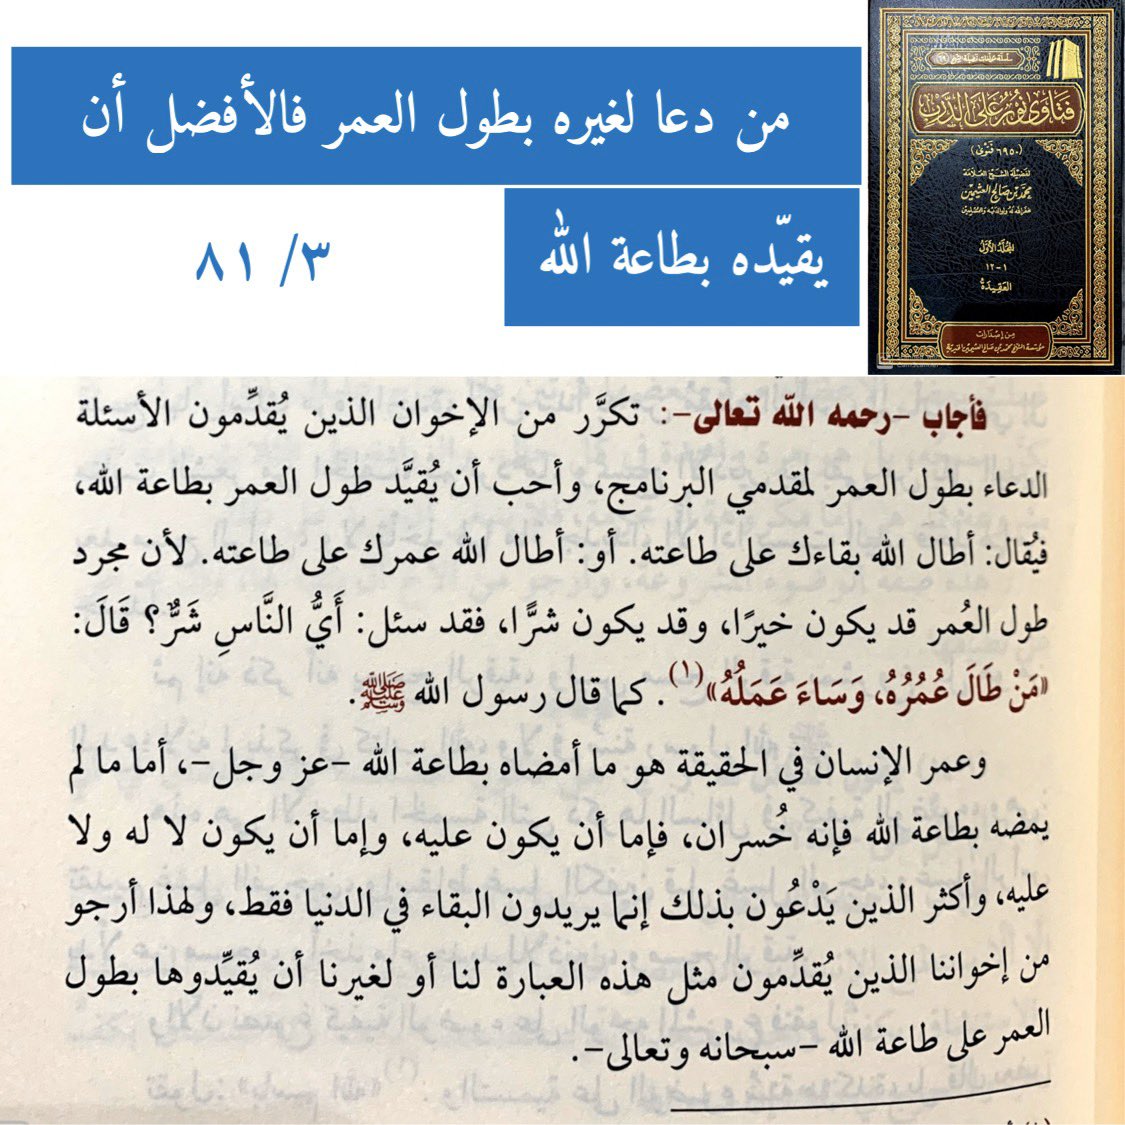 من دعا لغيره بطول العمر فالأفضل أن
يقيّده بطاعة الله
٣/ ٨١
فتاوى نور على الدرب
(٦٩٥٠ فتوى)
لفضيلة الشيخ العلامة
محمد بن صالح العثيمين
غفر الله له ولوالديه وللمسلمين
المجلد الأول
١-١٢
العقيدة
من إصدارات
مؤسسة الشيخ محمد بن صالح العثيمين الخيرية
فأجاب -رحمه الله تعالى-: تكرَّر من الإخوان الذين يُقدِّمون الأسئلة
الدعاء بطول العمر لمقدمي البرنامج، وأحب أن يُقيَّد طول العمر بطاعة الله،
فيُقال: أطال الله بقاءك على طاعته. أو: أطال الله عمرك على طاعته. لأن مجرد
طول العُمر قد يكون خيرًا، وقد يكون شرًّا، فقد سئل: أَيُّ النَّاسِ شَرٌّ؟ قَالَ:
«مَنْ طَالَ عُمُرُهُ، وَسَاءَ عَمَلُهُ»(١). كما قال رسول الله ﷺ.
وعمر الإنسان في الحقيقة هو ما أمضاه بطاعة الله -عز وجل-، أما ما لم
يمضه بطاعة الله فإنه خُسران، فإما أن يكون عليه، وإما أن يكون لا له ولا
عليه، وأكثر الذين يَدْعُون بذلك إنما يريدون البقاء في الدنيا فقط، ولهذا أرجو
من إخواننا الذين يُقدِّمون مثل هذه العبارة لنا أو لغيرنا أن يُقيِّدوها بطول
العمر على طاعة الله -سبحانه وتعالى-.